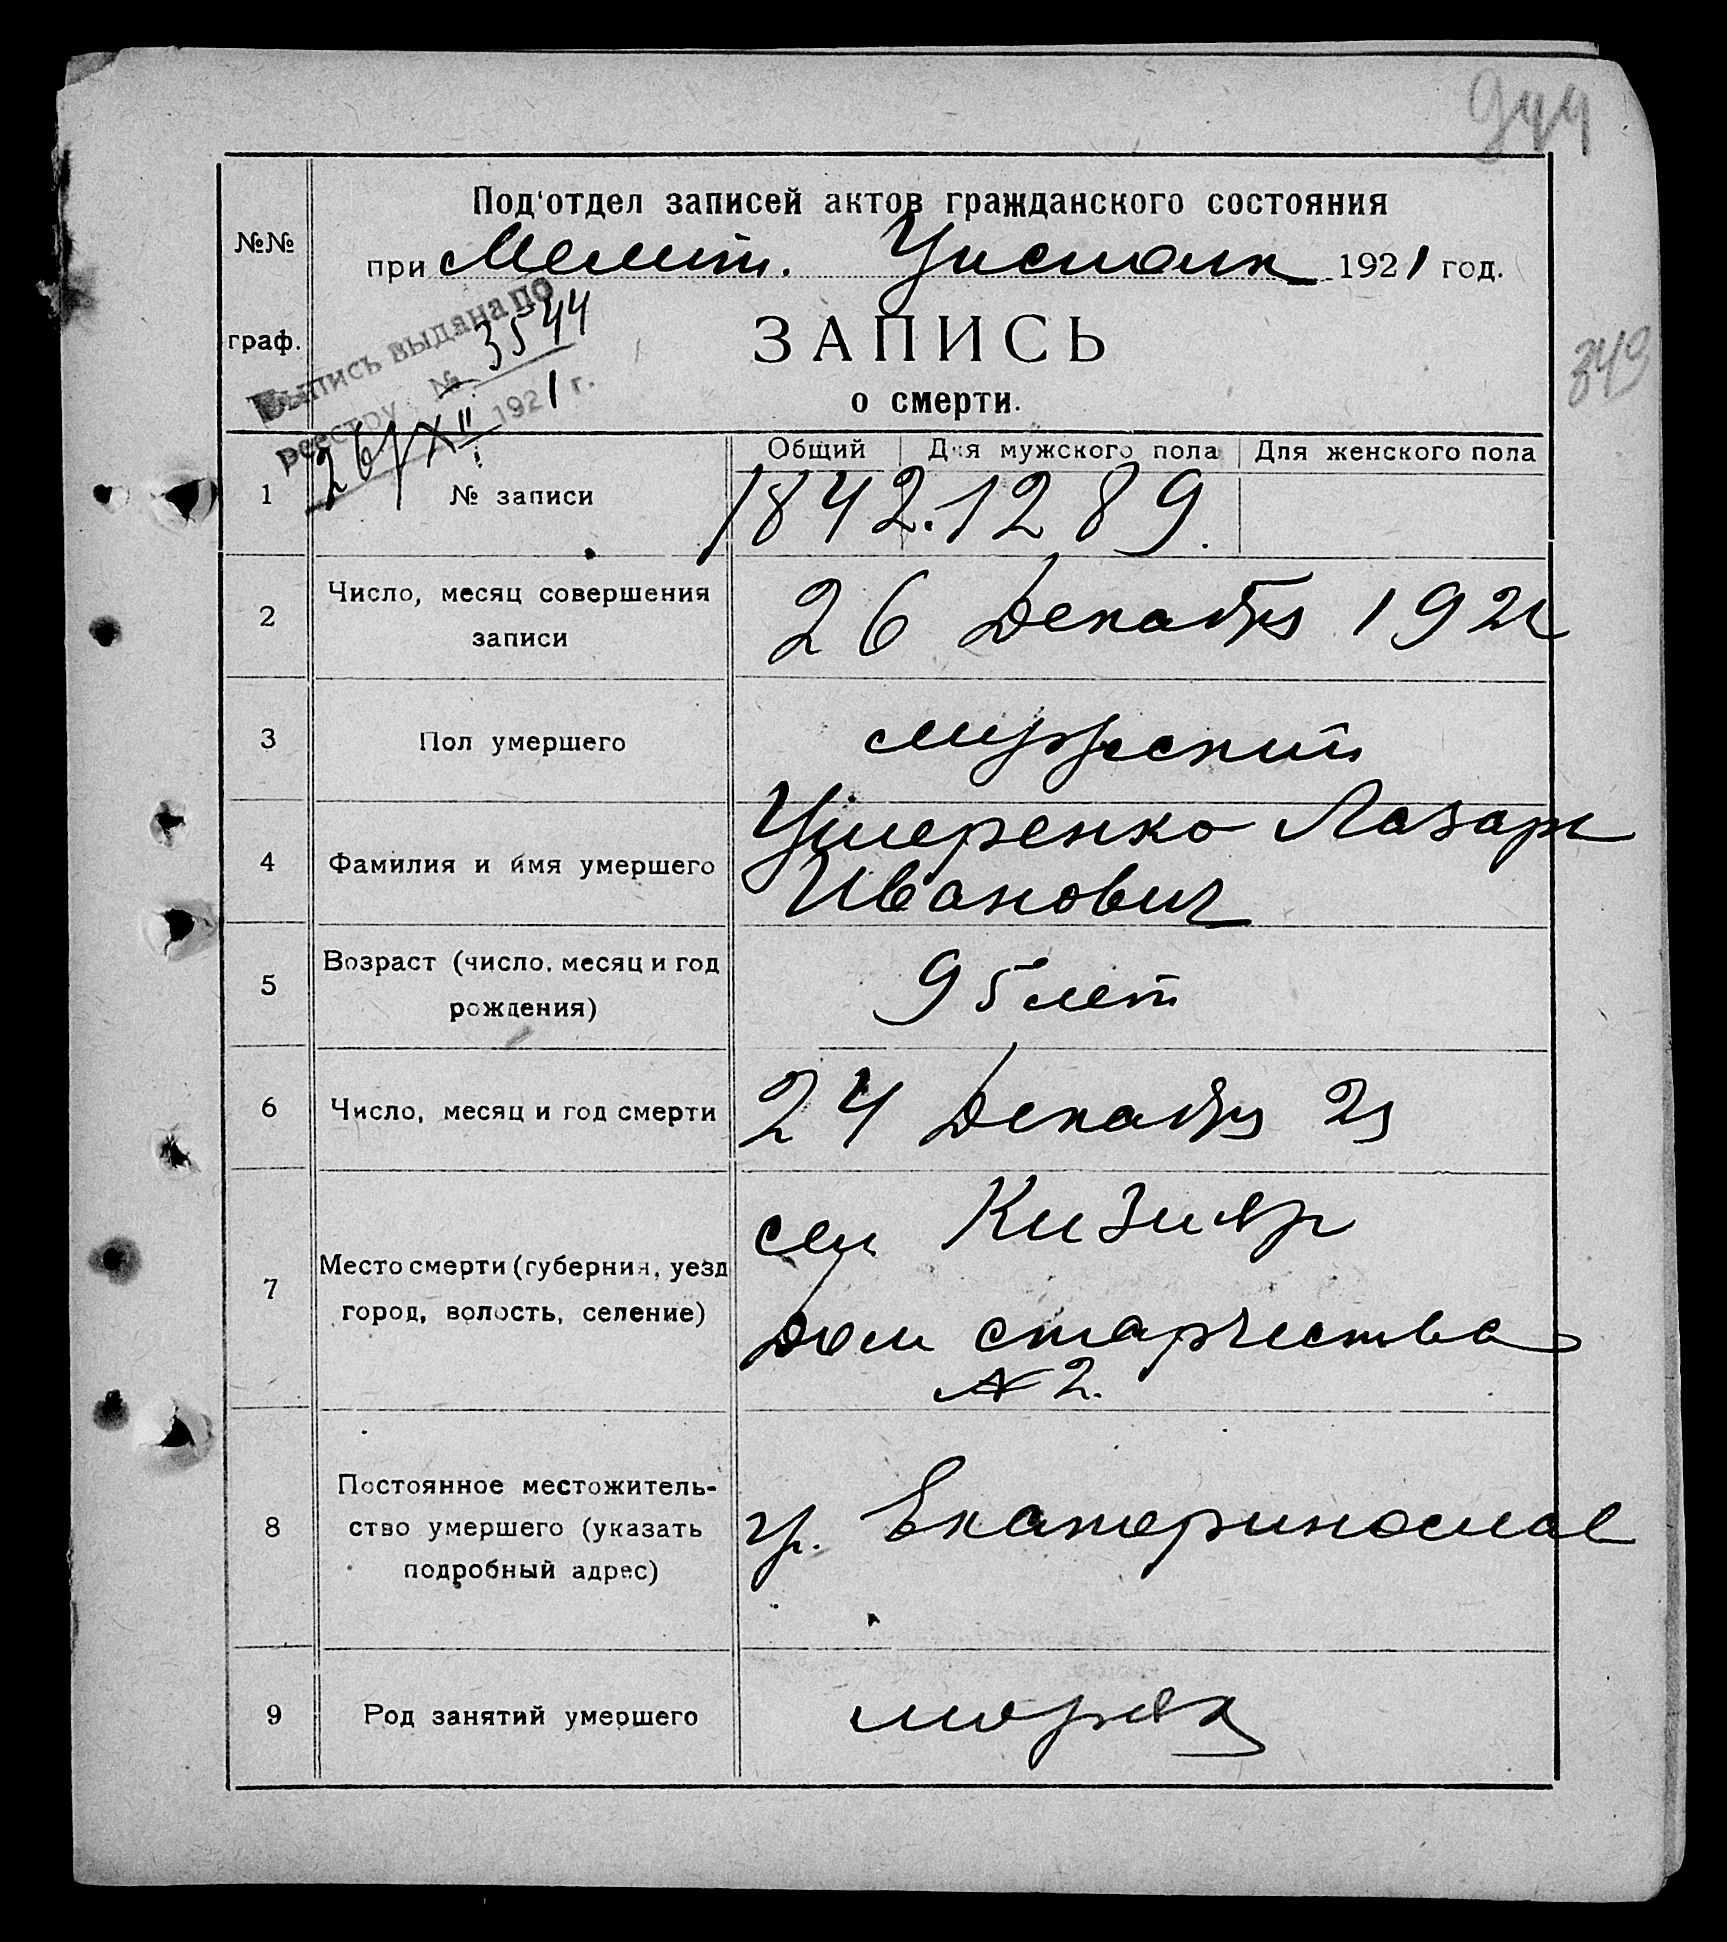 944
Под'отдел записей актов гражданского состояния
№№
при Мелит. Уисполк 1921 год.
Выпись выдана по
реестру № 3544
26/XII 1921 г.
граф.
ЗАПИСЬ
о смерти.
349
Общий Для мужского пола Для женского пола
1 № записи 1842. 1289.
2 Число, месяц совершения записи 26 Декабря 1921
3 Пол умершего мужский
4 Фамилия и имя умершего Ушеренко Лазарь
Иванович
5 Возраст (число, месяц и год рождения) 95 лет
6 Число, месяц и год смерти 24 Декабря 21
7 Место смерти (губерния, уезд город, волость, селение) сел Кизияр
Дом старчества
№ 2.
8 Постоянное местожитель-
ство умершего (указать подробный адрес) гр. Екатеринослав
9 Род занятий умершего моряк